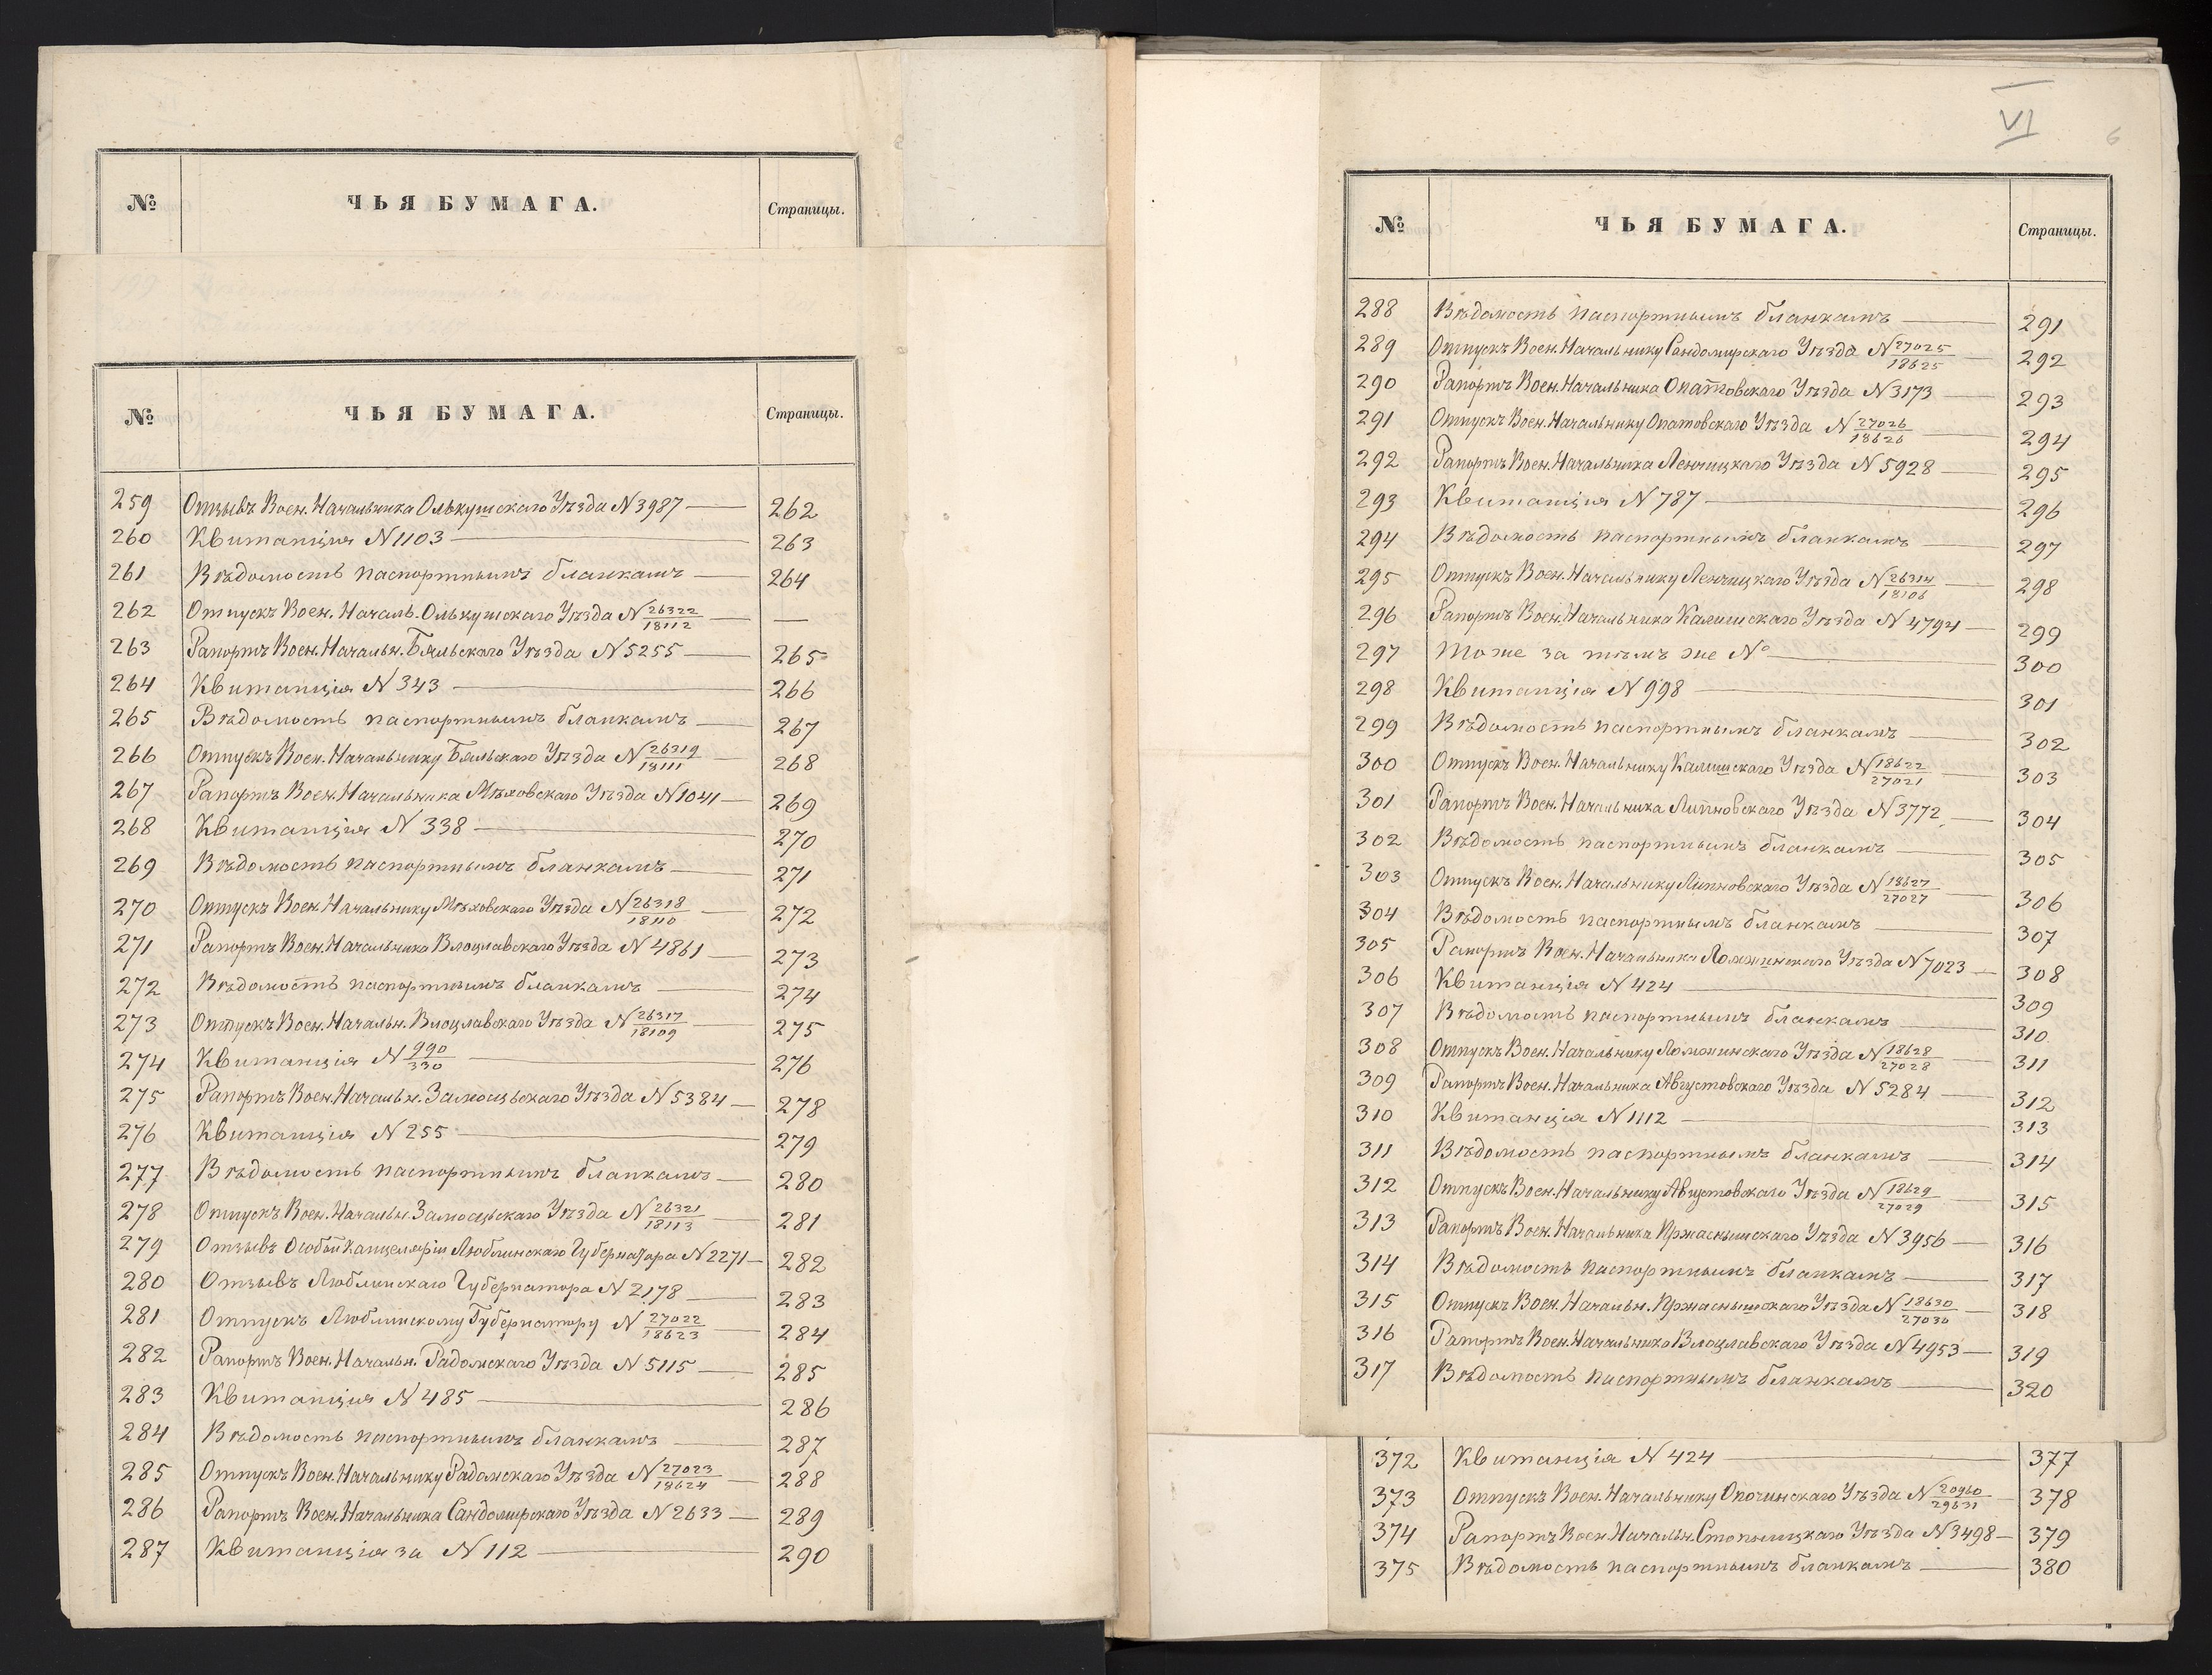 № ЧЬЯ БУМАГА. Страницы.
№ ЧЬЯ БУМАГА. Страницы.
259 Отзывъ Воен. Начальника Олькушскаго Уѣзда N 3987 — 262
260 Квитанція N 1103 — 263
261 Вѣдомость паспортнымъ бланкамъ — 264
262 Отпускъ Воен. Началь. Олькушскаго Уѣзда N 26322/18112 — —
263 Рапортъ Воен. Начальн. Бяльскаго Уѣзда N 5255 — 265
264 Квитанція N 343 — 266
265 Вѣдомость паспортнымъ бланкамъ — 267
266 Отпускъ Воен. Начальнику Бяльскаго Уѣзда N 26319/18111 — 268
267 Рапортъ Воен. Начальника Мѣховскаго Уѣзда N 1041 — 269
268 Квитанція N 338 — 270
269 Вѣдомость паспортнымъ бланкамъ — 271
270 Отпускъ Воен. Начальнику Мѣховскаго Уѣзда N 26318/18110 — 272
271 Рапортъ Воен. Начальника Влоцлавскаго Уѣзда N 4861 — 273
272 Вѣдомость паспортнымъ бланкамъ — 274
273 Отпускъ Воен. Начальн. Влоцлавскаго Уѣзда N 26317/18109 — 275
274 Квитанція N 990/330 — 276
275 Рапортъ Воен. Начальн. Замосцьскаго Уѣзда N 5384 — 278
276 Квитанція N 255 — 279
277 Вѣдомость паспортнымъ бланкамъ — 280
278 Отпускъ Воен. Начальн. Замосцьскаго Уѣзда N 26321/18113 — 281
279 Отзывъ Особой Канцеляріи Люблинскаго Губернатора N 2271 — 282
280 Отзывъ Люблинскаго Губернатора N 2178 — 283
281 Отпускъ Люблинскому Губернатору N 27022/18623 — 284
282 Рапортъ Воен. Начальн. Радомскаго Уѣзда N 5115 — 285
283 Квитанція N 485 — 286
284 Вѣдомость паспортнымъ бланкамъ — 287
285 Отпускъ Воен. Начальнику Радомскаго Уѣзда N 27023/18624 — 288
286 Рапортъ Воен. Начальника Сандомирскаго Уѣзда N 2633 — 289
287 Квитанція за N 112 — 290
VI 6
№ ЧЬЯ БУМАГА. Страницы.
288 Вѣдомость паспортнымъ бланкамъ — 291
289 Отпускъ Воен. Начальнику Сандомирскаго Уѣзда N 27025/18625 — 292
290 Рапортъ Воен. Начальника Опатовскаго Уѣзда N 3173 — 293
291 Отпускъ Воен. Начальнику Опатовскаго Уѣзда N 27026/18626 — 294
292 Рапортъ Воен. Начальника Ленчицкаго Уѣзда N 5928 — 295
293 Квитанція N 787 — 296
294 Вѣдомость паспортнымъ бланкамъ — 297
295 Отпускъ Воен. Начальнику Ленчицкаго Уѣзда N 26314/18106 — 298
296 Рапортъ Воен. Начальника Калишскаго Уѣзда N 4794 — 299
297 Тоже за тѣмъ же № — 300
298 Квитанція N 998 — 301
299 Вѣдомость паспортнымъ бланкамъ — 302
300 Отпускъ Воен. Начальнику Калишскаго Уѣзда N 18622/27021 — 303
301 Рапортъ Воен. Начальника Липновскаго Уѣзда N 3772 — 304
302 Вѣдомость паспортнымъ бланкамъ — 305
303 Отпускъ Воен. Начальнику Липновскаго Уѣзда N 18627/27027 — 306
304 Вѣдомость паспортнымъ бланкамъ — 307
305 Рапортъ Воен. Начальника Ломжинскаго Уѣзда N 7023 — 308
306 Квитанція N 424 — 309
307 Вѣдомость паспортнымъ бланкамъ — 310
308 Отпускъ Воен. Начальнику Ломжинскаго Уѣзда N 18628/27028 — 311
309 Рапортъ Воен. Начальника Августовскаго Уѣзда N 5284 — 312
310 Квитанція N 1112 — 313
311 Вѣдомость паспортнымъ бланкамъ — 314
312 Отпускъ Воен. Начальнику Августовскаго Уѣзда N 18629/27029 — 315
313 Рапортъ Воен. Начальника Пржаснышскаго Уѣзда N 3956 — 316
314 Вѣдомость паспортнымъ бланкамъ — 317
315 Отпускъ Воен. Начальн. Пржаснышскаго Уѣзда N 18630/27030 — 318
316 Рапортъ Воен. Начальника Влоцлавскаго Уѣзда N 4953 — 319
317 Вѣдомость паспортнымъ бланкамъ — 320
372 Квитанція N 424 — 377
373 Отпускъ Воен. Начальнику Опочинскаго Уѣзда N 20460/29631 — 378
374 Рапортъ Воен. Начальн. Стопницкаго Уѣзда N 3498 — 379
375 Вѣдомость паспортнымъ бланкамъ — 380